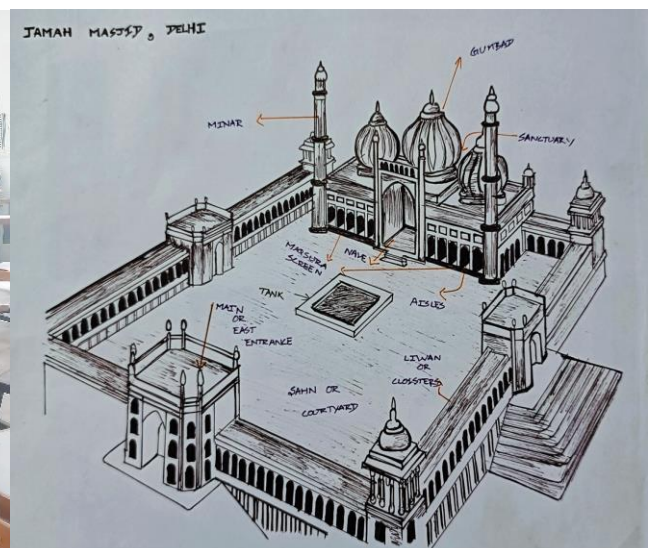 JAMAH MASJID, DELHI
GUMBAD
MINAR
SANCTUARY
MAQSURA
SCREEN
NAVE
TANK
AISLES
MAIN
OR
EAST
ENTRANCE
LIWAN
OR
CLOSSTERS
SAHN OR
COURTYARD